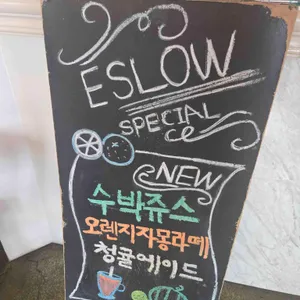 ESLOW
SPECIAL
NEW
수박쥬스
오렌지자몽라떼
청귤에이드